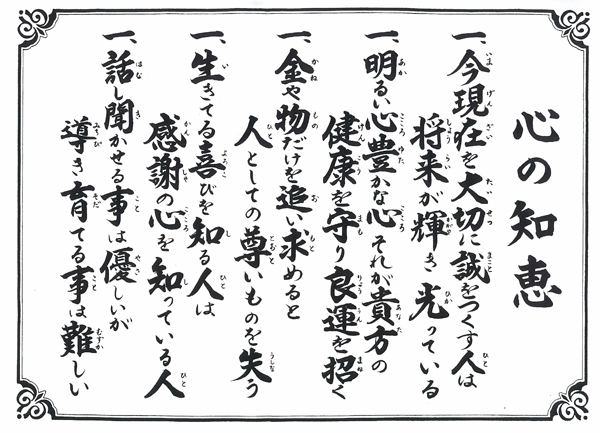 心の知恵
一、今現在を大切に誠をつくす人は
将来が輝き光っている
一、明るい心豊かな心それが貴方の
健康を守り良運を招く
一、金や物だけを追い求めると
人としての尊いものを失う
一、生きてる喜びを知る人は
感謝の心を知っている人
一、話し聞かせる事は優しいが
導き育てる事は難しい